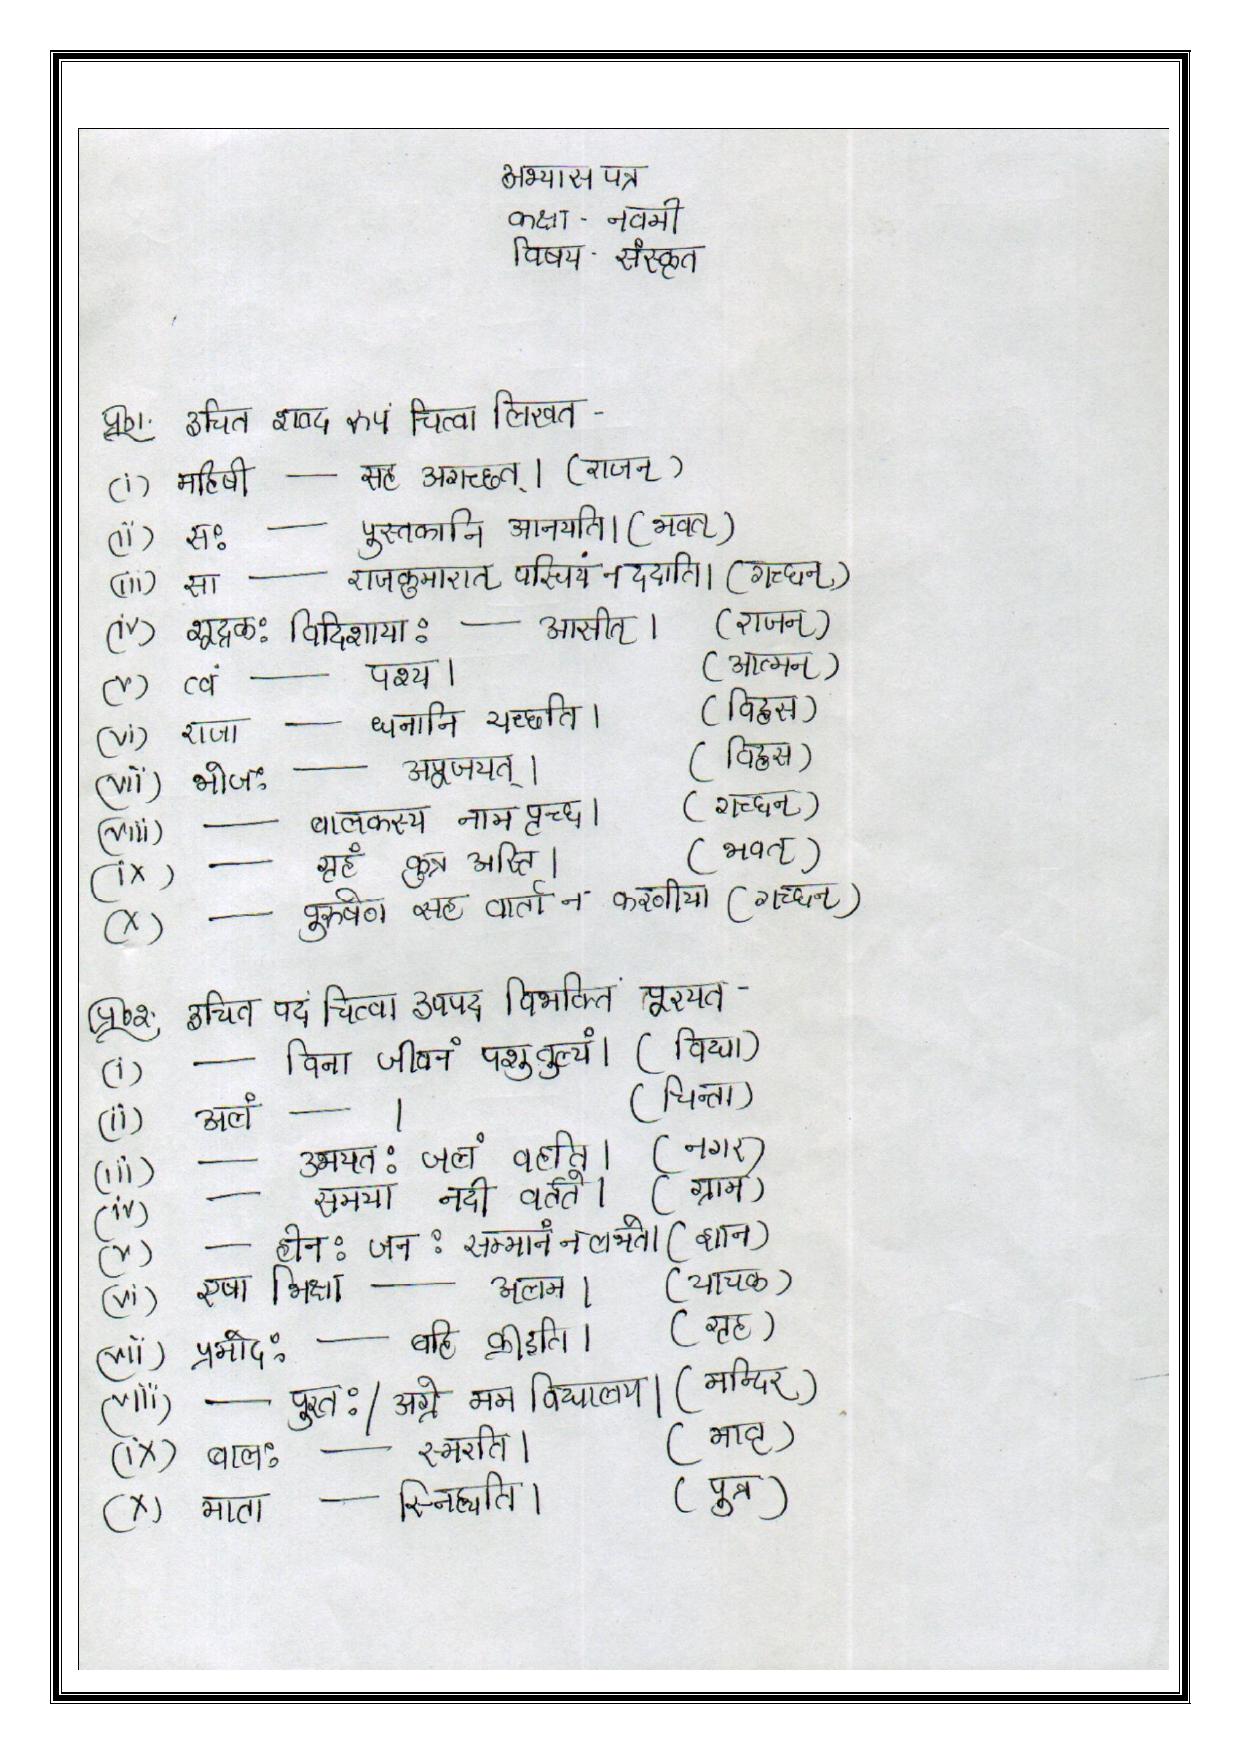 अभ्यास पत्र
कक्षा - नवमी
विषय - संस्कृत
प्र०1. उचित शब्द रुपं चित्वा लिखत -
(i) महिषी — सह अगच्छत्। (राजन्)
(ii) सः — पुस्तकानि आनयति। (भवत्)
(iii) सा — राजकुमारात् परिचयं न ददाति। (गच्छन्)
(iv) शूद्रकः विदिशायाः — आसीत्। (राजन्)
(v) त्वं — पश्य। (आत्मन्)
(vi) राजा — धनानि यच्छति। (विद्वस)
(vii) भोजः — अपूजयत्। (विद्वस)
(viii) — बालकस्य नाम पृच्छ। (गच्छन्)
(ix) — गृहं कुत्र अस्ति। (भवत्)
(x) — पुरुषेण सह वार्ता न करणीया (गच्छन्)
प्र०2. उचित पदं चित्वा उपपद विभक्तिं पूरयत -
(i) — विना जीवनं पशुतुल्यं। (विद्या)
(ii) अलं — । (चिन्ता)
(iii) — उभयतः जलं वहति। (नगर)
(iv) — समया नदी वर्तते। (ग्राम)
(v) — हीनः जनः सम्मानं न लभते। (ज्ञान)
(vi) एषा भिक्षा — अलम। (याचक)
(vii) प्रमोदः — बहि क्रीडति। (गृह)
(viii) — पुरतः/अग्रे मम विद्यालय। (मन्दिर)
(ix) बालः — स्मरति। (मातृ)
(x) माता — स्निह्यति। (पुत्र)